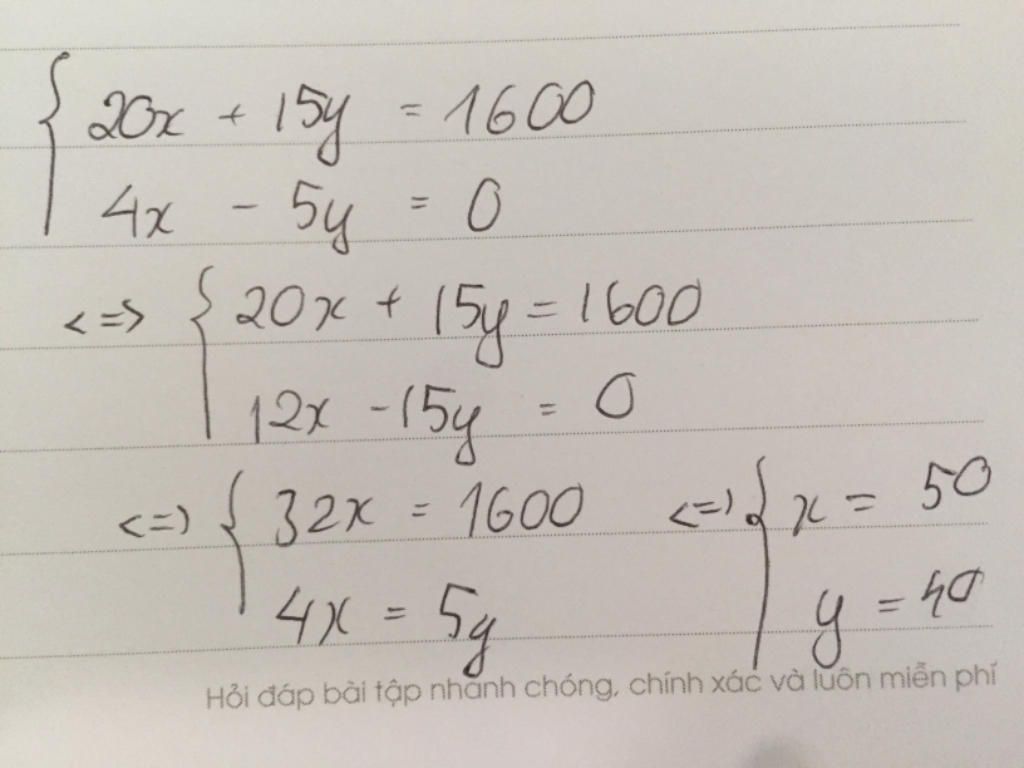 { 20x + 15y = 1600
4x - 5y = 0
<=> { 20x + 15y = 1600
12x - 15y = 0
<=> { 32x = 1600 <=> { x = 50
4x = 5y y = 40
Hỏi đáp bài tập nhanh chóng, chính xác và luôn miễn phí